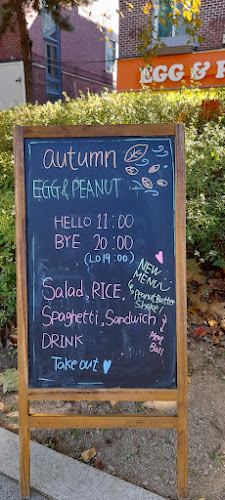 EGG & P
autumn
EGG & PEANUT
HELLO 11:00
BYE 20:00
(LO 19:00)
NEW
MENU
Peanut Butter
Shake!
Salad, RICE,
Spaghetti, Sandwich
DRINK
Ball
Take out